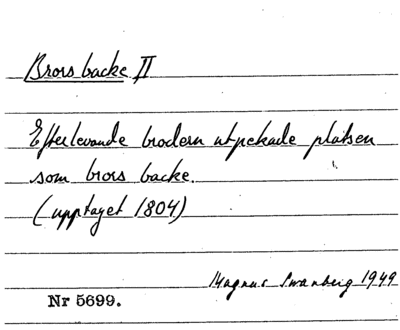 Brors backe II
Efterlevande brodern utpekade platsen
som brors backe.
(upptaget 1804)
Magnus Swanberg 1949
Nr 5699.